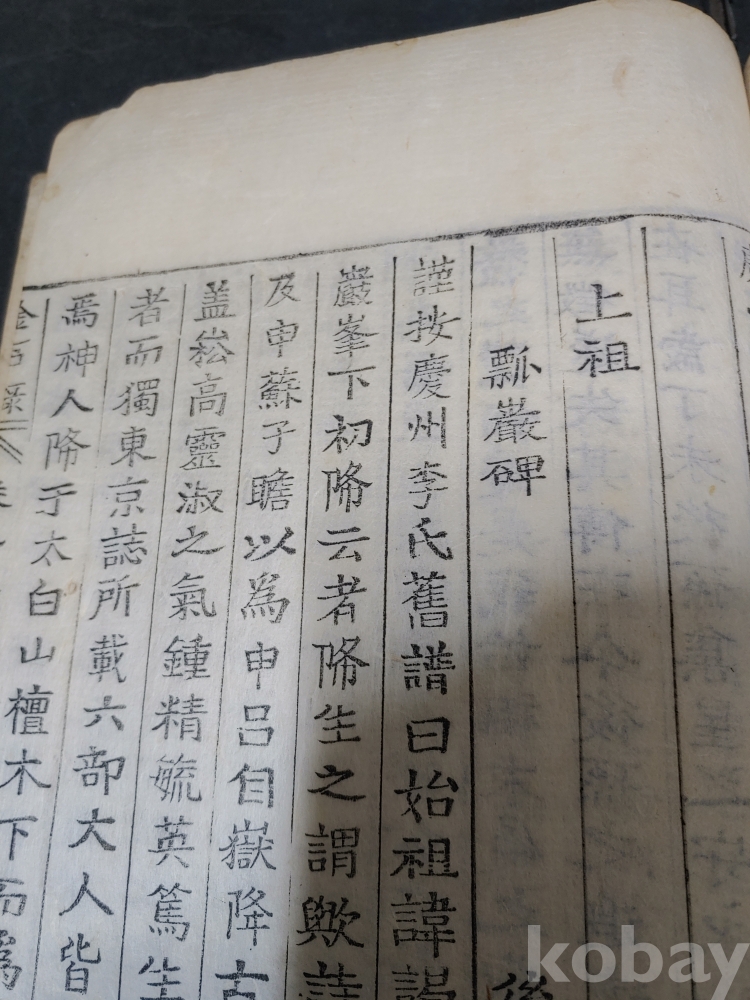 上祖
瓢巖碑
後
謹按慶州李氏舊譜曰始祖諱謁
巖峯下初降云者降生之謂歟詩
及申蘇子瞻以為申呂自嶽降古
盖崧高靈淑之氣鍾精毓英篤生
者而獨東京誌所載六部大人皆
焉神人降于太白山檀木下而爲
kobay